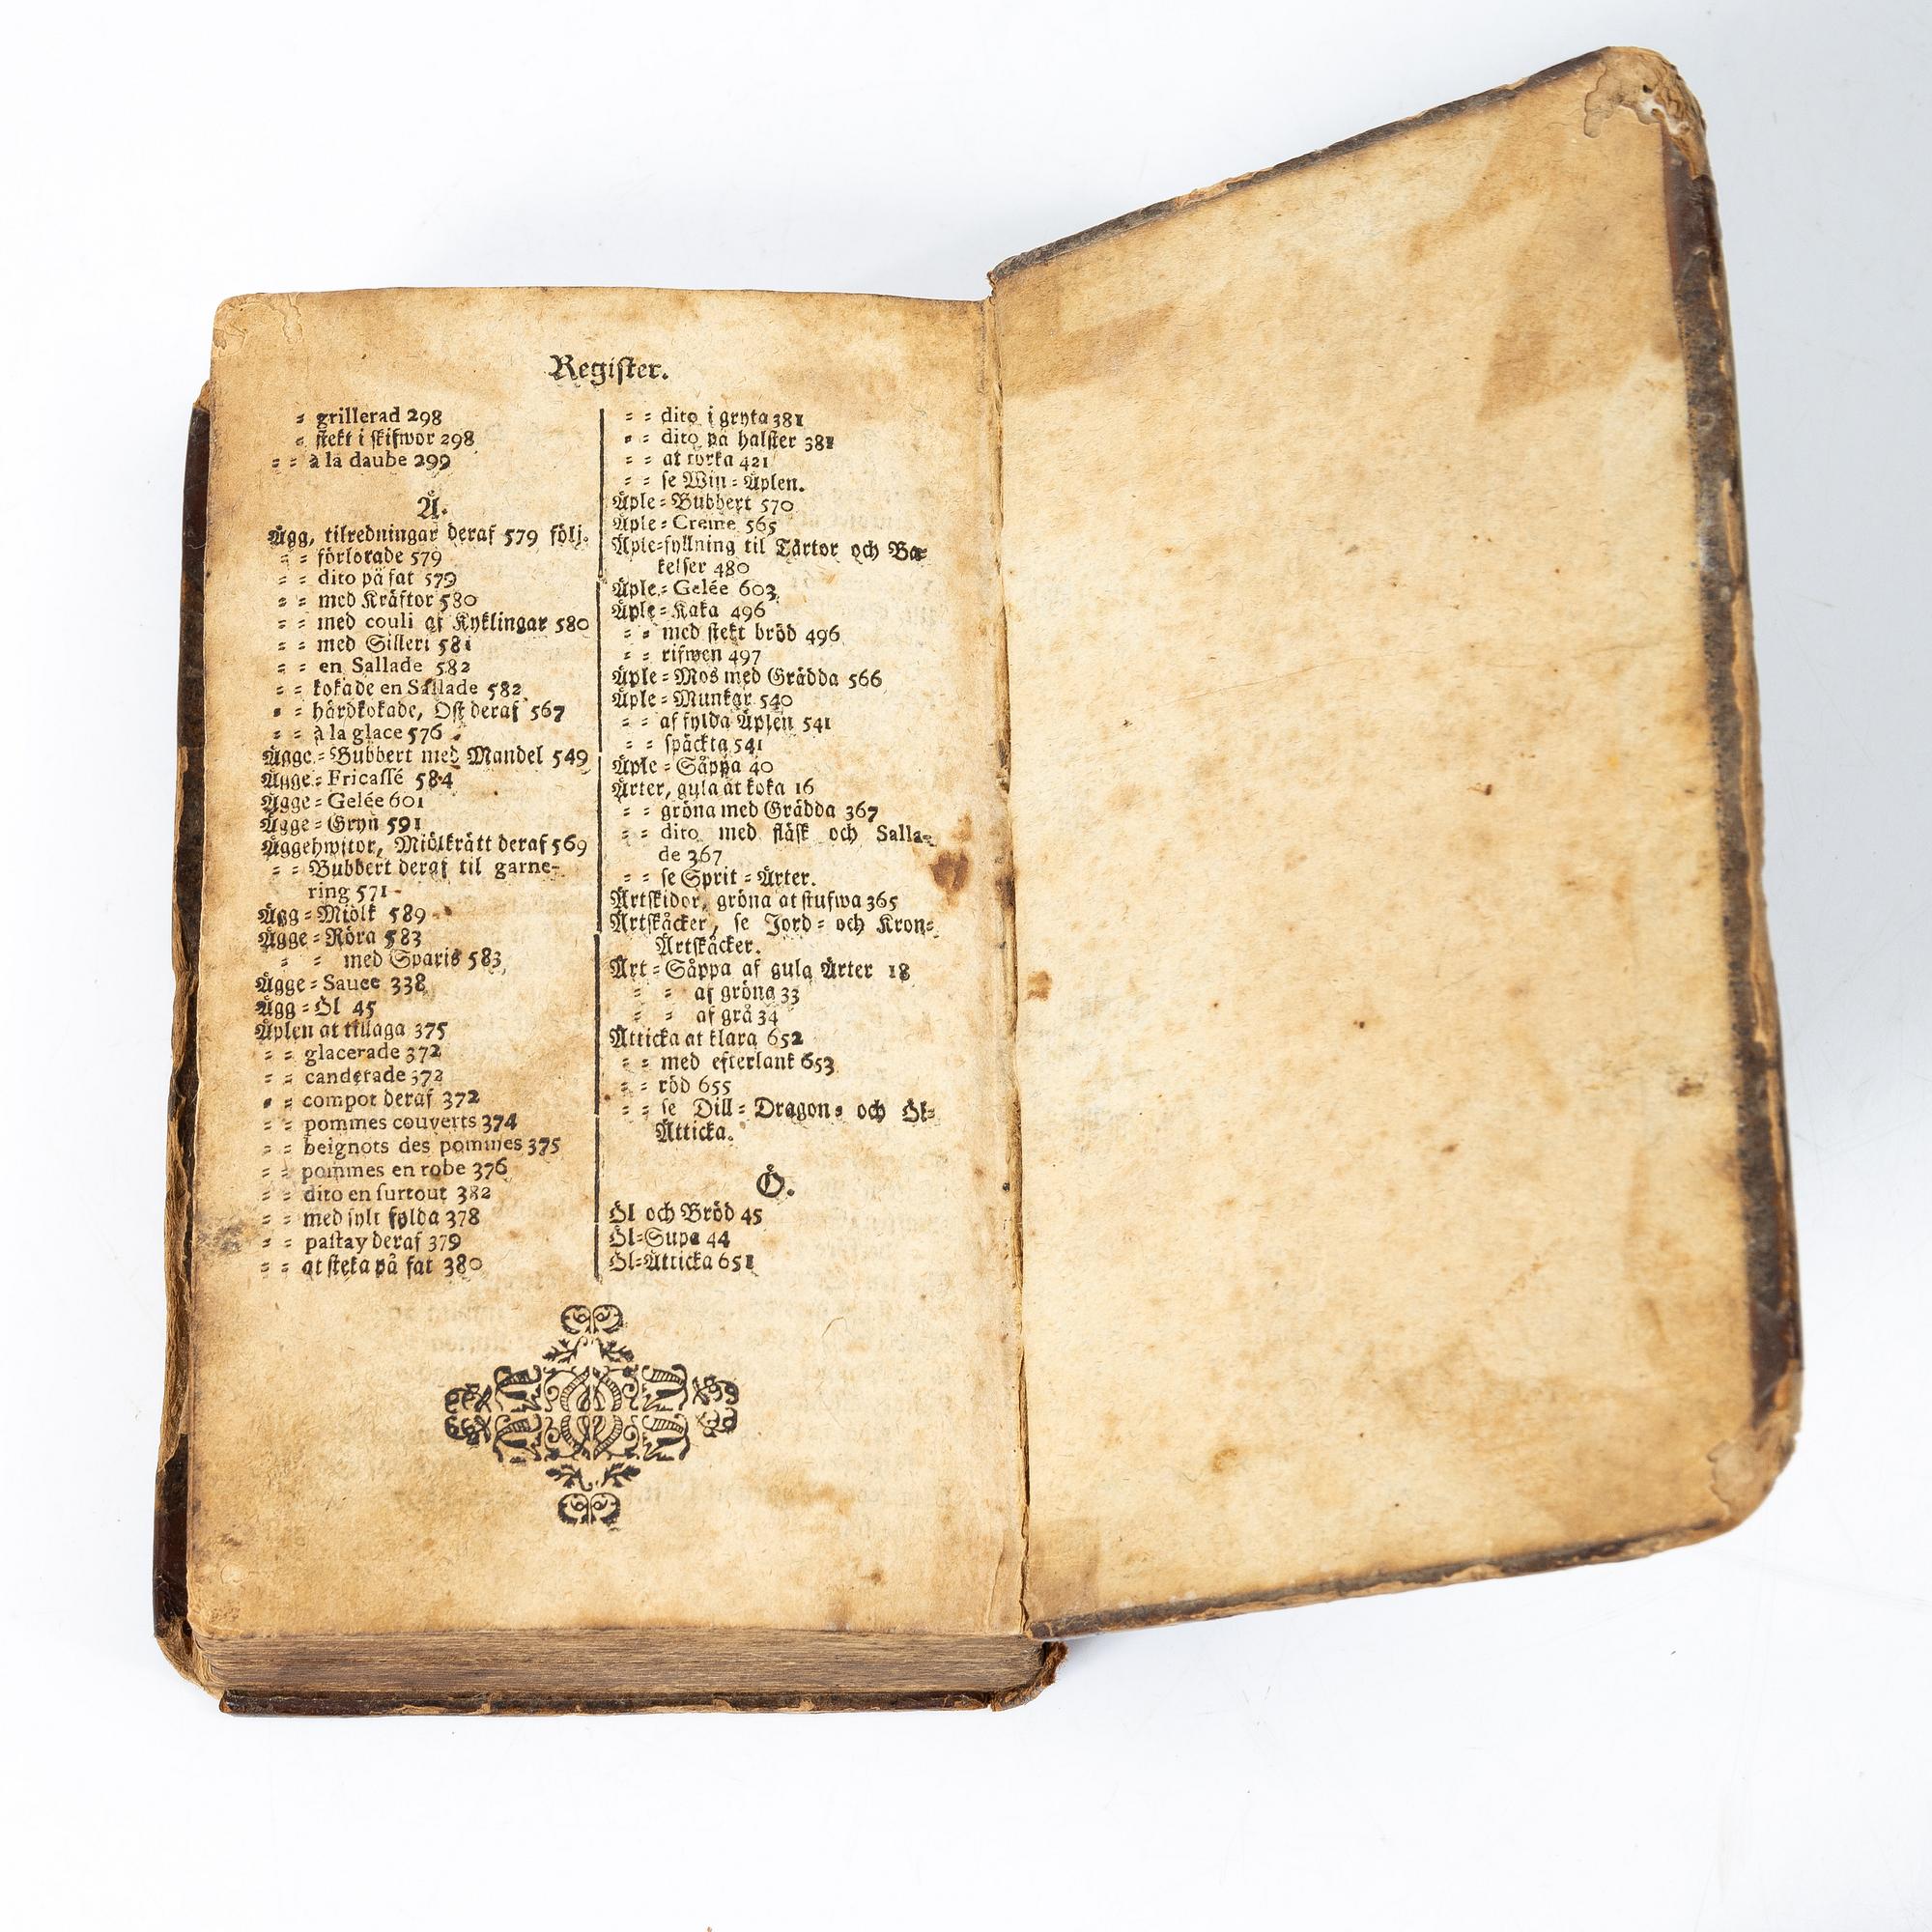 Register.
= grillerad 298
= stekt i skifwor 298
= = à la daube 299
Ä.
Ägg, tilredningar deraf 579 följ.
= = förlorade 579
= = dito på fat 579
= = med Kräftor 580
= = med couli af Kyklingar 580
= = med Silleri 581
= = en Sallade 582
= = kokade en Sallade 582
= = hårdkokade, Ost deraf 567
= = à la glace 576
Ägge=Bubbert med Mandel 549
Ägge=Fricassé 584
Ägge=Gelée 601
Ägge=Gryn 591
Äggehwitor, Miölkrätt deraf 569
= = Bubbert deraf til garne-
ring 571
Ägg=Miölk 589
Ägge=Röra 583
= = med Sparis 583
Ägge=Sauce 338
Ägg=Öl 45
Äplen at tillaga 375
= = glacerade 372
= = canderade 372
= = compot deraf 372
= = pommes couverts 374
= = beignots des pommes 375
= = pommes en robe 376
= = dito en surtout 382
= = med sylt fylda 378
= = pastay deraf 379
= = at steka på fat 380
= = dito i gryta 381
= = dito på halster 381
= = at torka 421
= = se Win=Äplen.
Äple=Bubbert 570
Äple=Creme 565
Äple=fyllning til Tårtor och Ba=
kelser 480
Äple=Gelée 603
Äple=Kaka 496
= = med stekt bröd 496
= = rifwen 497
Äple=Mos med Grädda 566
Äple=Munkar 540
= = af fylda Äplen 541
= = späckta 541
Äple=Såppa 40
Ärter, gula at koka 16
= = gröna med Grädda 367
= = dito med fläsk och Salla=
de 367
= = se Sprit=Ärter.
Ärtskidor, gröna at stufwa 365
Ärtskåcker, se Jord= och Kron=
Ärtskåcker.
Ärt=Såppa af gula Ärter 18
= = af gröna 33
= = af grå 34
Ätticka at klara 652
= = med efterlank 653
= = röd 655
= = se Dill= Dragon= och Öl=
Ätticka.
Ö.
Öl och Bröd 45
Öl=Supa 44
Öl=Ätticka 651